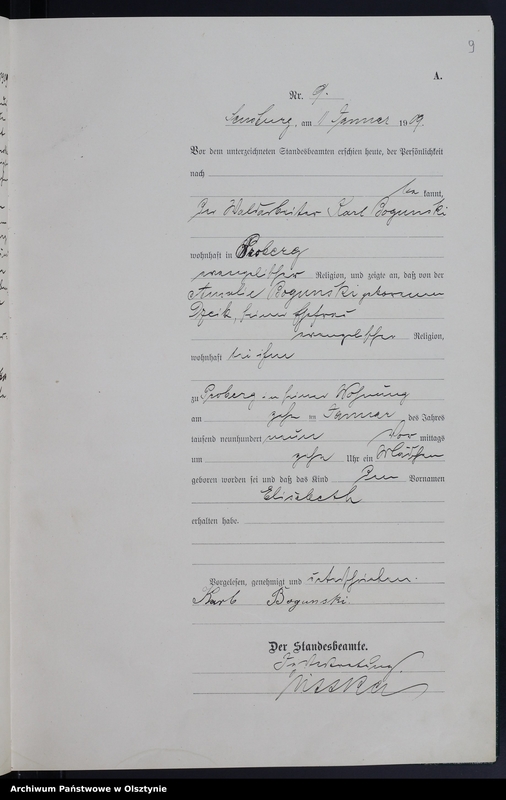 9
A.
Nr. 9.
Sensburg, am 11 Januar 1909.
Vor dem unterzeichneten Standesbeamten erschien heute, der Persönlichkeit
nach
be kannt,
der Waldarbeiter Karl Bogunski
wohnhaft in Proberg
evangelischer Religion, und zeigte an, daß von der
Amalie Bogunski geborenen
Dzeik, seiner Ehefrau
evangelischer Religion,
wohnhaft bei ihm
zu Proberg in seiner Wohnung
am zehn ten Januar des Jahres
tausend neunhundert neun Vor mittags
um zehn Uhr ein Mädchen
geboren worden sei und daß das Kind den Vornamen
Elisabeth
erhalten habe.
Vorgelesen, genehmigt und unterschrieben.
Karl Bogunski
Der Standesbeamte.
In Vertretung.
Archiwum Państwowe w Olsztynie